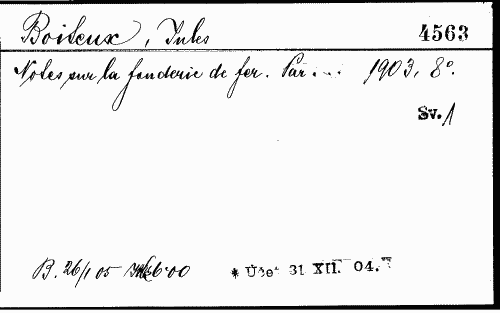 Boiteux, Jules 4563
Notes sur la fonderie de fer. Par... 1903, 8°.
Sv. 1
B. 26/1 05 6·00 * Účet 31 XII. 04.